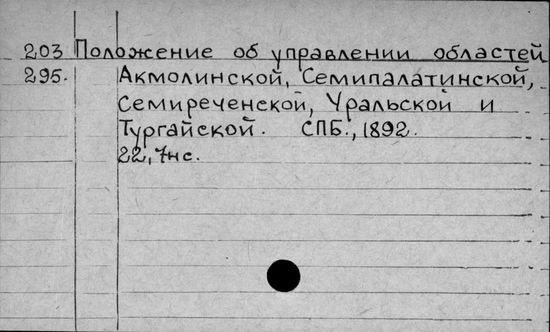 203 Положение об управлении областей
295. Акмолинской, Семипалатинской,
Семиреченской, Уральской и
Тургайской. СПБ., 1892.
22, 7нс.